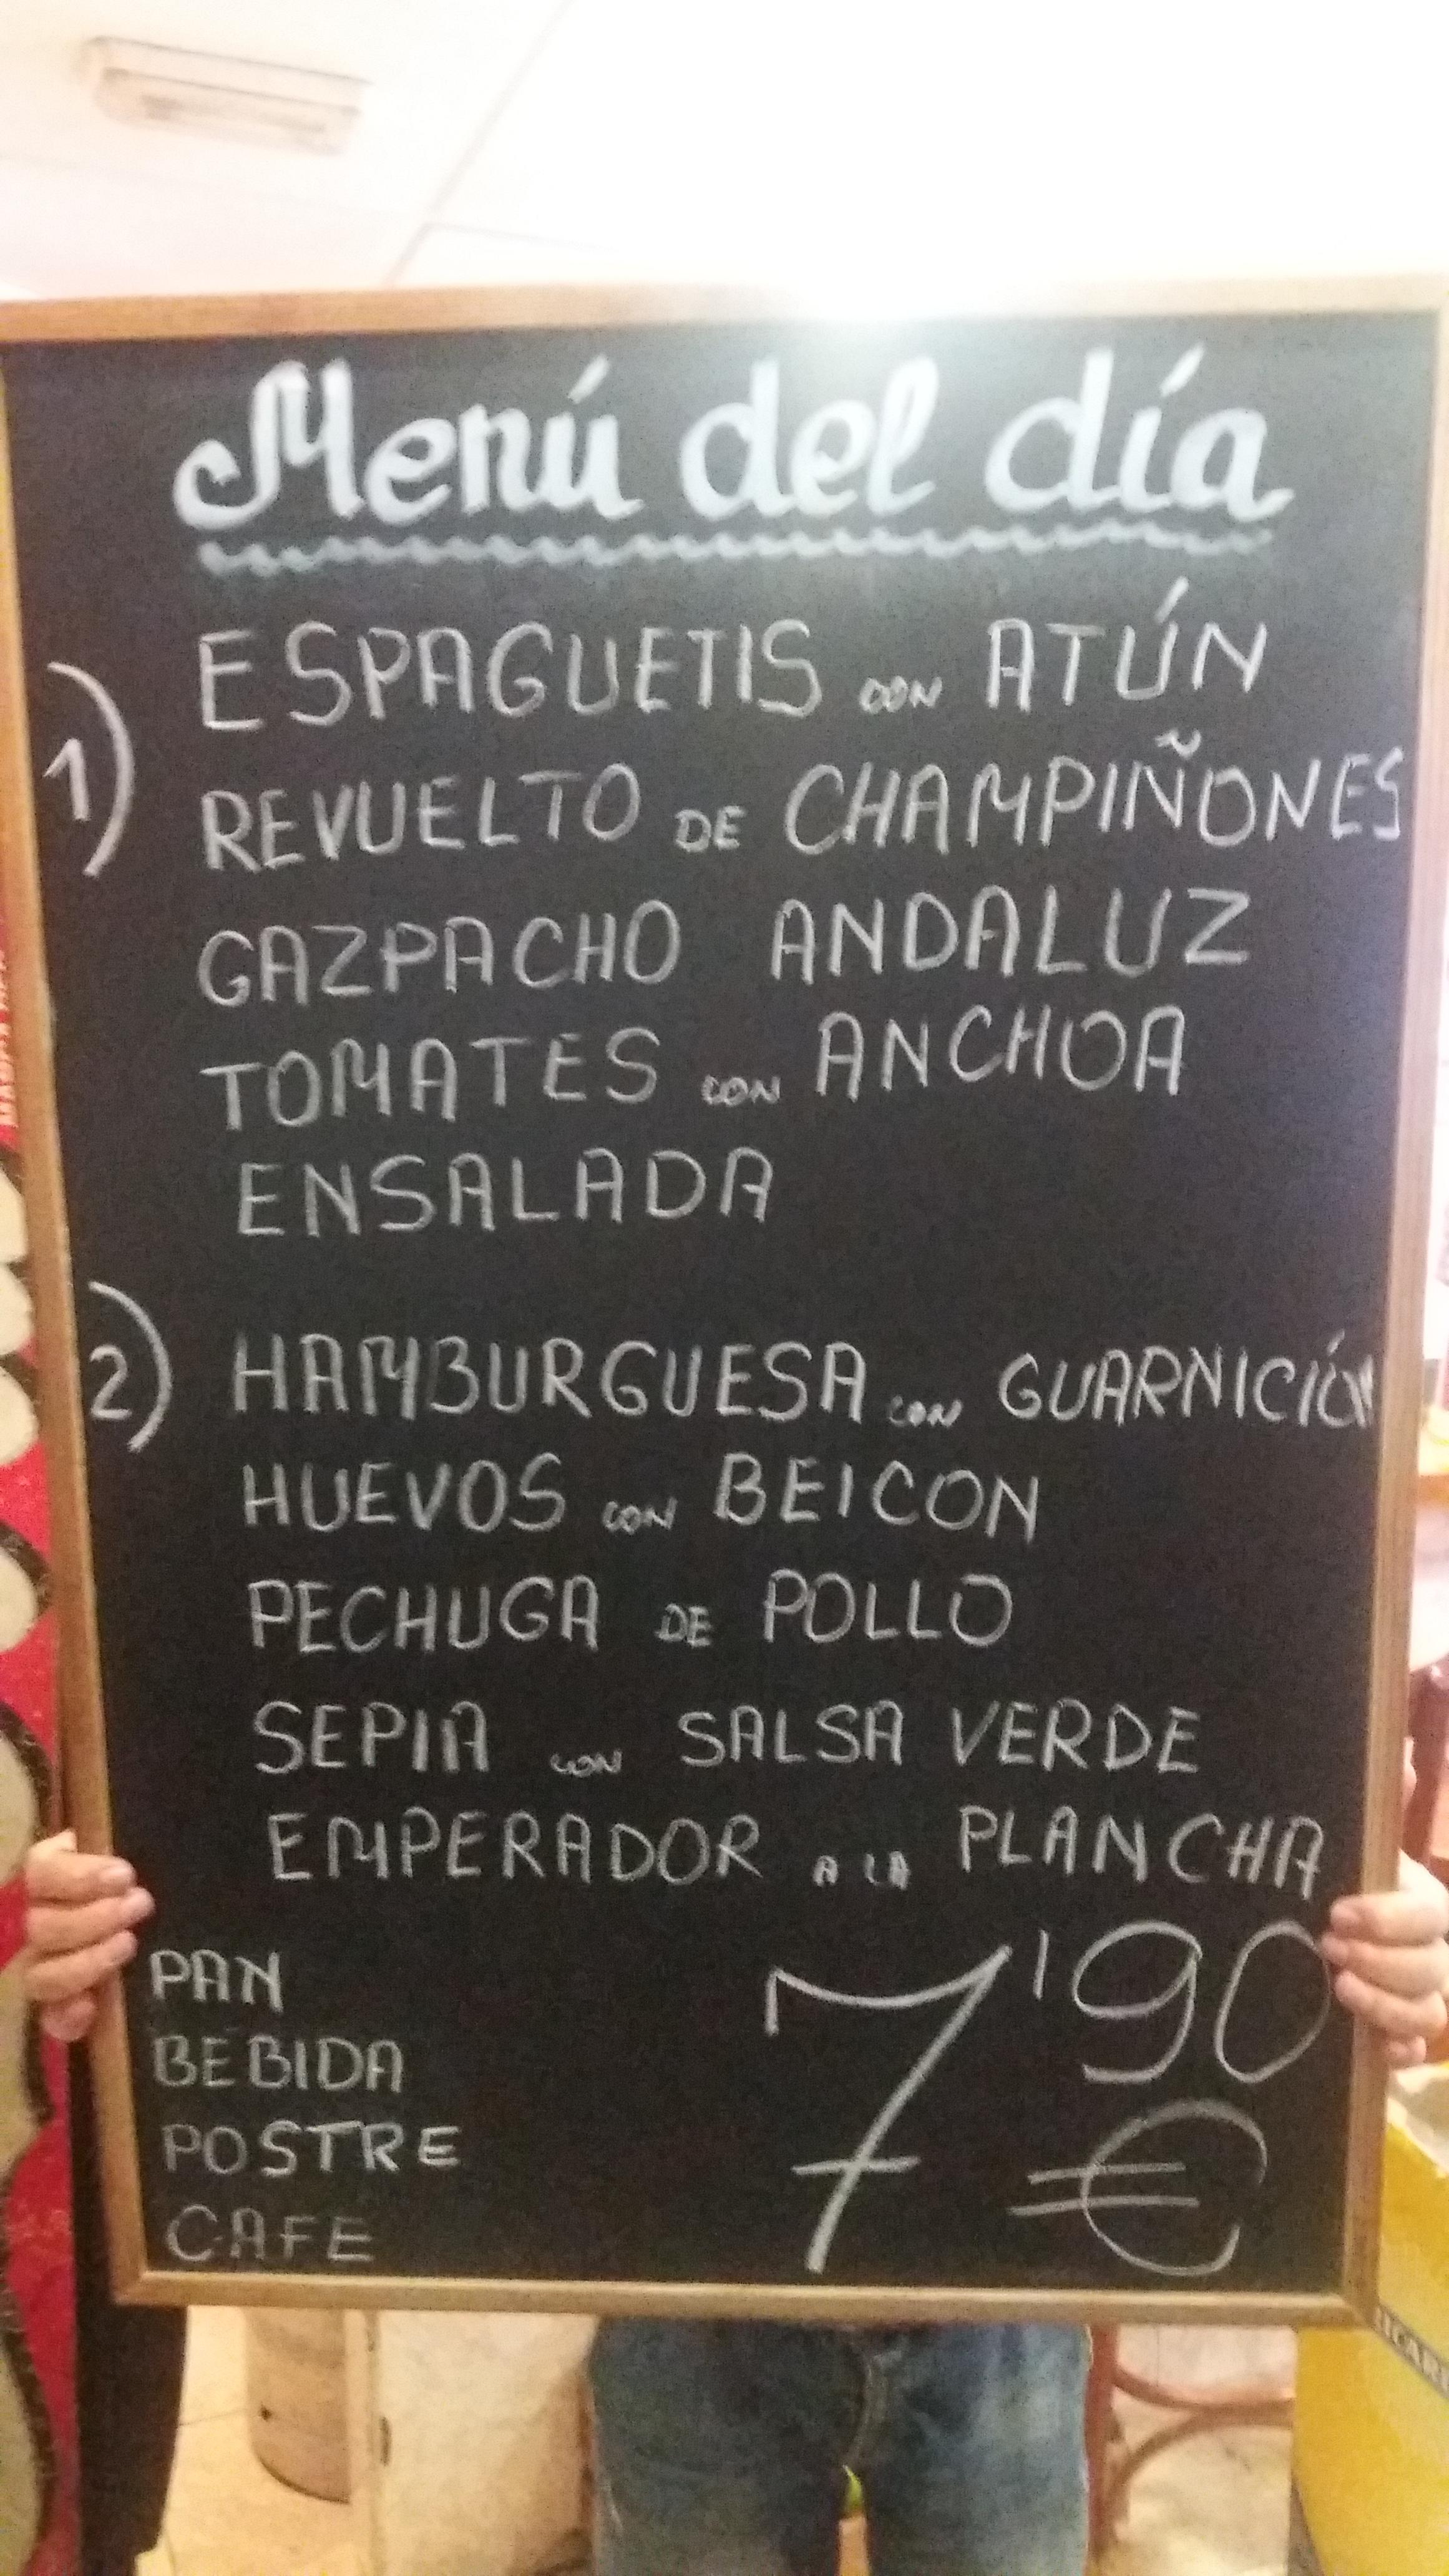 Menú del día
1)
ESPAGUETIS CON ATÚN
REVUELTO DE CHAMPIÑONES
GAZPACHO ANDALUZ
TOMATES CON ANCHOA
ENSALADA
2)
HAMBURGUESA CON GUARNICIÓN
HUEVOS CON BEICON
PECHUGA DE POLLO
SEPIA CON SALSA VERDE
EMPERADOR A LA PLANCHA
PAN
BEBIDA
POSTRE
CAFE
7'90
€